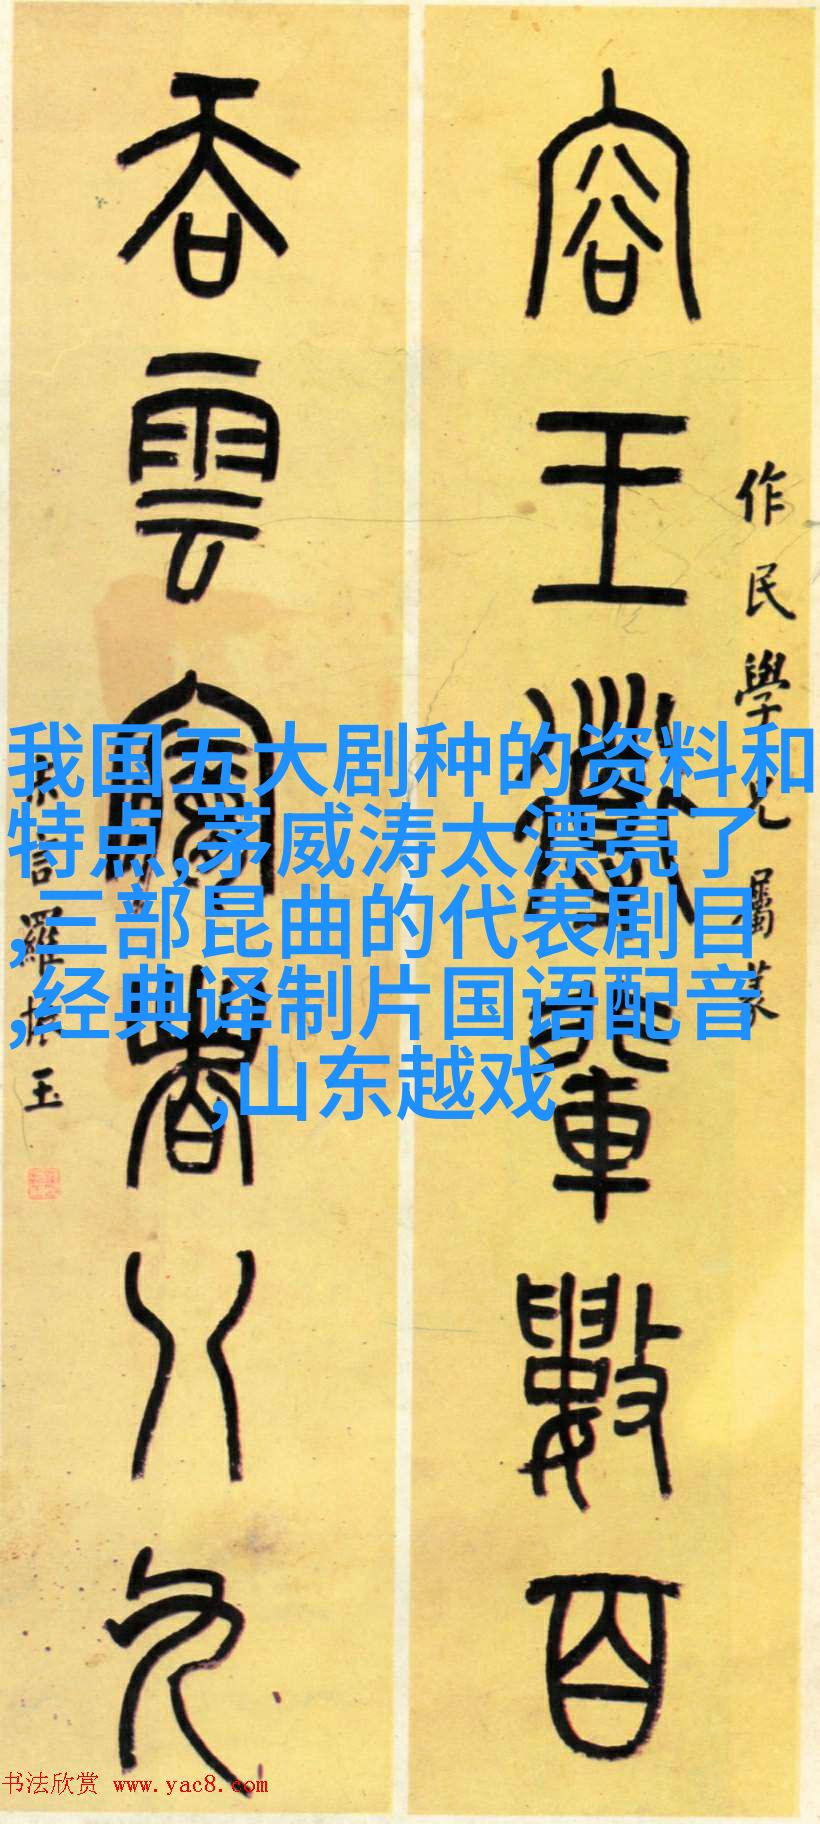 容王導輩數百
作民學兄屬篆
吞雲夢者八九
羅振玉
我国五大剧种的资料和
特点,茅威涛太漂亮了
,三部昆曲的代表剧目
,经典译制片国语配音
,山东越戏
书法欣赏 www.yac8.com